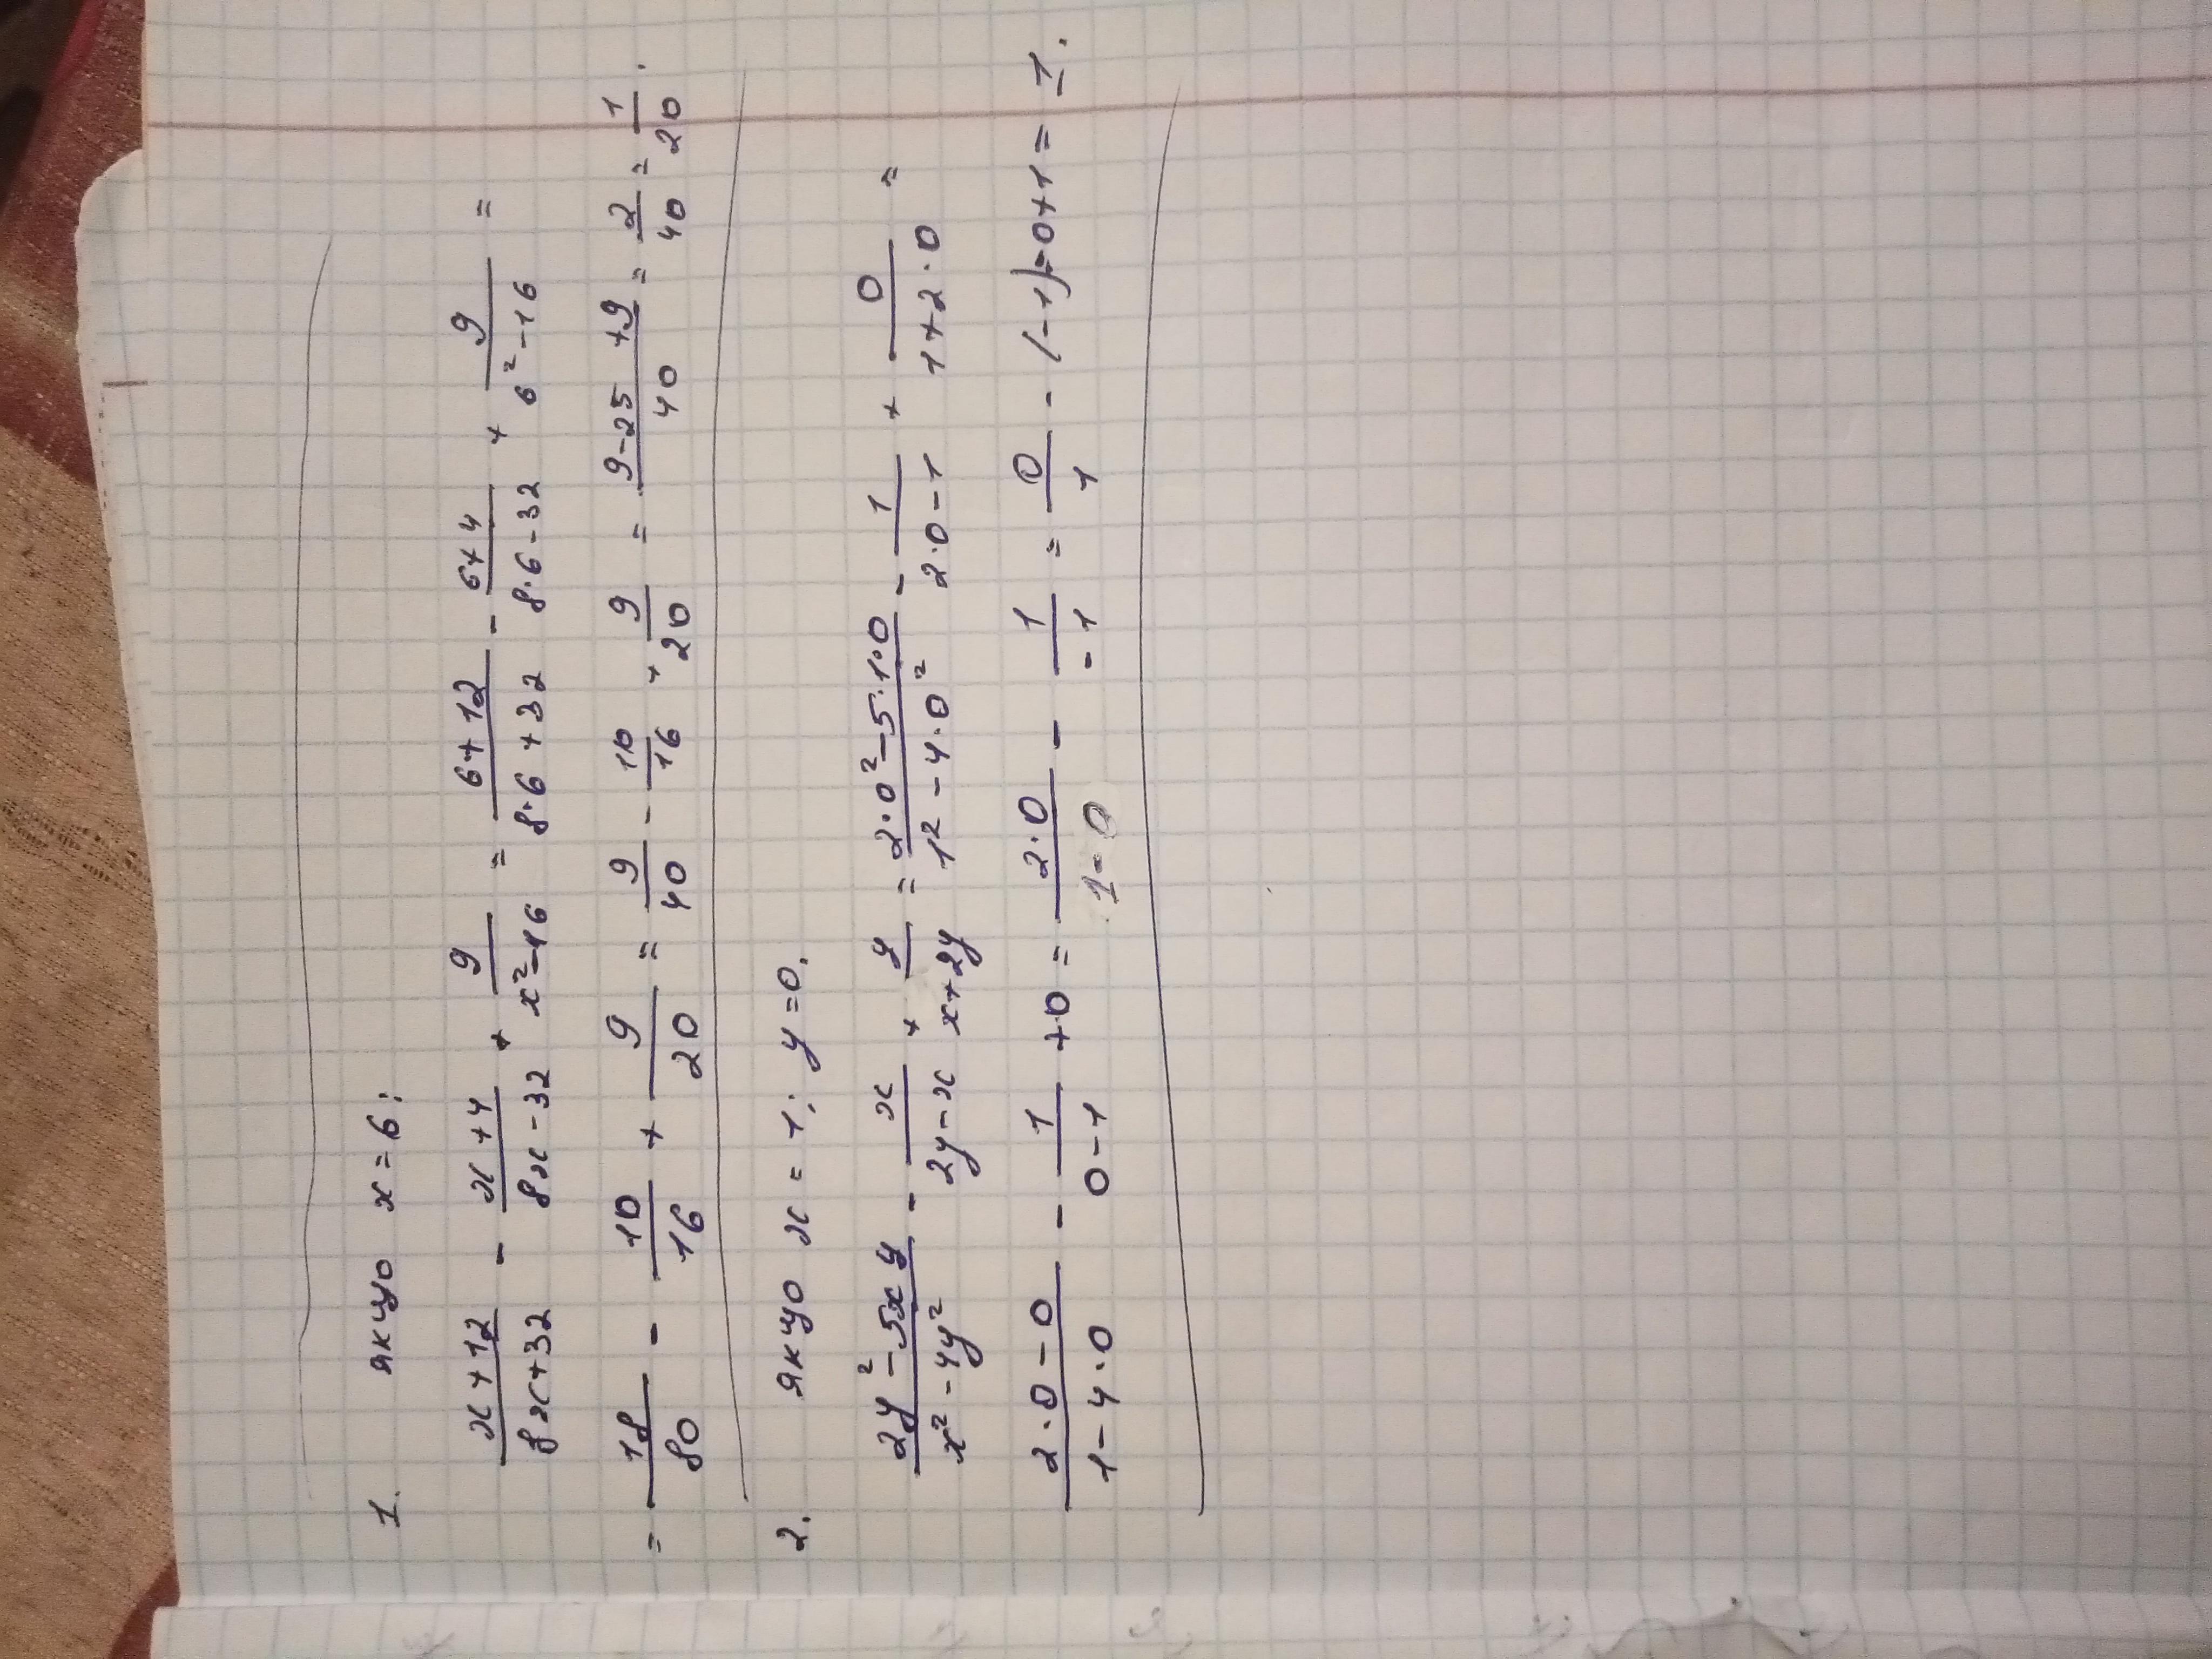 1. якщо x = 6:
(x+12)/(8x+32) - (x+4)/(8x-32) + 9/(x²-16) = (6+12)/(8·6+32) - (6+4)/(8·6-32) + 9/(6²-16) =
= 18/80 - 10/16 + 9/20 = 9/40 - 10/16 + 9/20 = (9-25+9)/40 = 2/40 = 1/20.
2. якщо x = 1; y = 0.
(2y²-5xy)/(x²-4y²) - x/(2y-x) + y/(x+2y) = (2·0²-5·1·0)/(1²-4·0²) - 1/(2·0-1) + 0/(1+2·0) =
(2·0-0)/(1-4·0) - 1/(0-1) +0 = (2·0)/(1-0) - 1/(-1) = 0/1 - (-1)=0+1 = 1.